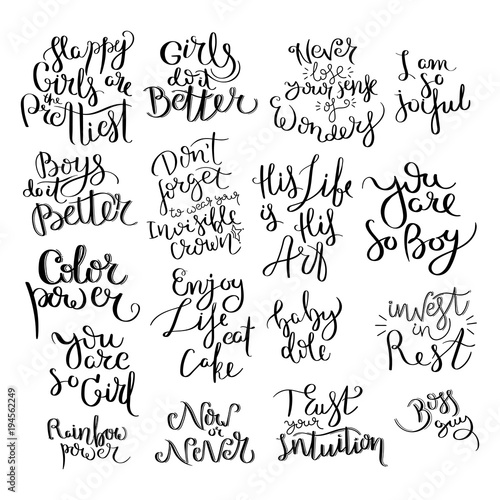 Happy
Girls are
the
Prettiest
Girls
do it
Better
Never
lose
your sense
of
& Wonders
I am
so
joiful
Boys
do it
Better
Don't
forget
to wear your
Invisible
crown
His Life
is His
Art
you
are
so Boy
Color
power
Enjoy
Life
eat
Cake
baby
dole
invest
in
Rest
you
are
so Girl
Rainbow
power
Now
or
Never
Trust
your
intuition
Boss
guy
Adobe Stock | #194562249